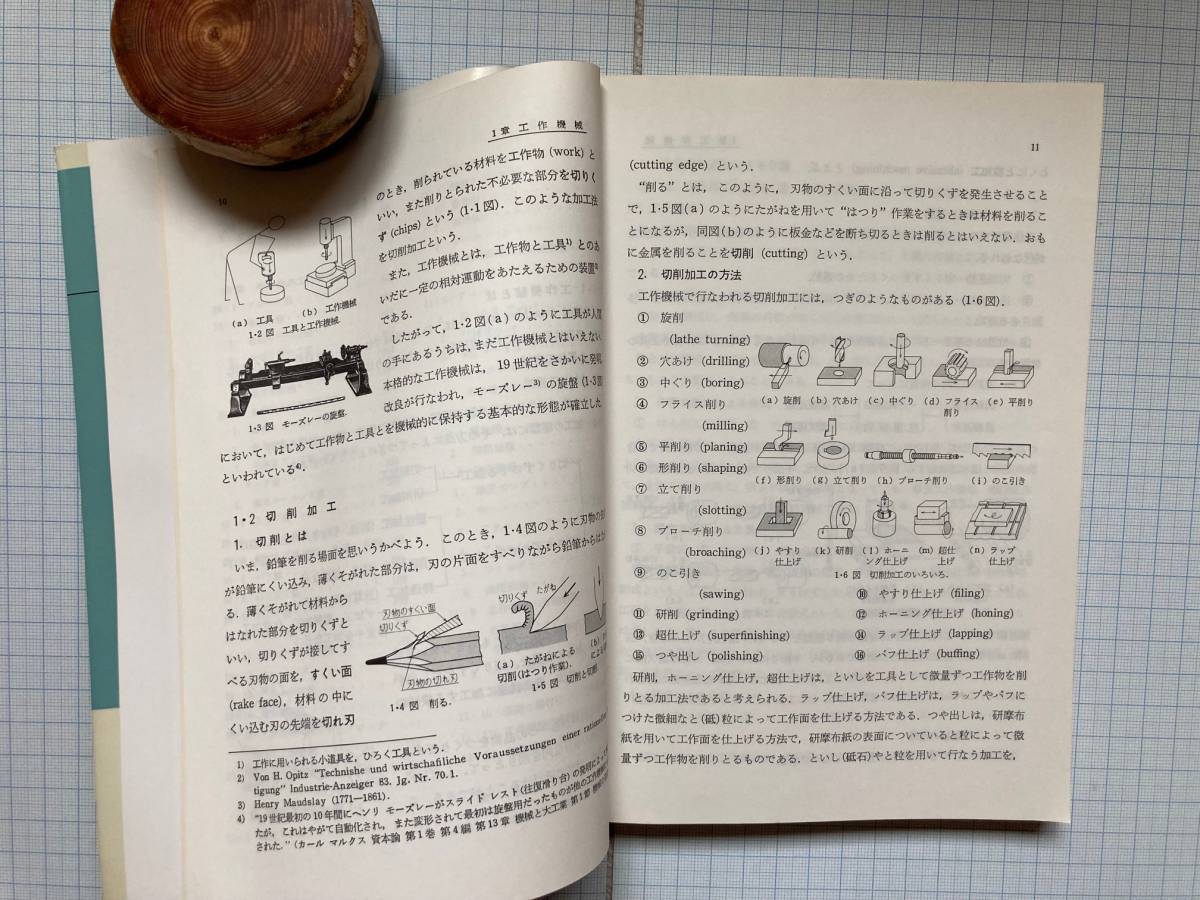 10
1章 工 作 機 械
のとき，削られている材料を工作物 (work) と
いい，また削りとられた不必要な部分を切りく
ず (chips) という (1·1図)．このような加工法
を切削加工という．
また，工作機械とは，工作物と工具1) とのあ
いだに一定の相対運動をあたえるための装置2)
である．
したがって，1·2図(a) のように工具が人間
の手にあるうちは，まだ工作機械とはいえない
本格的な工作機械は，19世紀をさかいに発明
改良が行なわれ，モーズレー3) の旋盤 (1·3図
において，はじめて工作物と工具とを機械的に保持する基本的な形態が確立した
といわれている4)．
(a) 工具
(b) 工作機械
1·2図 工具と工作機械．
1·3図 モーズレーの旋盤．
1·2 切 削 加 工
1. 切削とは
いま，鉛筆を削る場面を思いうかべよう．このとき，1·4図のように刃物の
が鉛筆にくい込み，薄くそがれた部分は，刃の片面をすべりながら鉛筆からは
る．薄くそがれて材料から
はなれた部分を切りくずと
いい，切りくずが接してす
べる刃物の面を，すくい面
(rake face)，材料の中に
くい込む刃の先端を切れ刃
刃物のすくい面
切りくず
刃物の切れ刃
1·4図 削る．
切りくず
たがね
(a) たがねによる
切削(はつり作業)．
(b)
による
1·5図 切削と切断
1) 工作に用いられる小道具を，ひろく工具という．
2) Von H. Opitz "Technishe und wirtschafiliche Voraussetzungen einer rationellen
tigung" Industrie-Anzeiger 83. Jg. Nr. 70. 1.
3) Henry Maudslay (1771—1861).
4) "19世紀最初の10年間にヘンリ モーズレーがスライド レスト(往復滑り台)の発明によって
たが，これはやがて自動化され，また変形されて最初は旋盤用だったものが他の工作機械
された．" (カール マルクス 資本論 第1巻 第4編 第13章 機械と大工業 第1節
11
(cutting edge) という．
"削る" とは，このように，刃物のすくい面に沿って切りくずを発生させること
で，1·5図(a) のようにたがねを用いて "はつり" 作業をするときは材料を削るこ
とになるが，同図(b) のように板金などを断ち切るときは削るとはいえない．おも
に金属を削ることを切削 (cutting) という．
2. 切削加工の方法
工作機械で行なわれる切削加工には，つぎのようなものがある (1·6図)．
① 旋削
(lathe turning)
② 穴あけ (drilling)
③ 中ぐり (boring)
④ フライス削り
(milling)
⑤ 平削り (planing)
⑥ 形削り (shaping)
⑦ 立て削り
(slotting)
⑧ ブローチ削り
(broaching)
⑨ のこ引き
(sawing)
(a) 旋削 (b) 穴あけ (c) 中ぐり (d) フライス削り (e) 平削り
(f) 形削り (g) 立て削り (h) ブローチ削り (i) のこ引き
(j) やすり仕上げ (k) 研削 (l) ホーニング仕上げ (m) 超仕上げ (n) ラップ仕上げ
1·6図 切削加工のいろいろ．
⑩ やすり仕上げ (filing)
⑪ 研削 (grinding)
⑫ ホーニング仕上げ (honing)
⑬ 超仕上げ (superfinishing)
⑭ ラップ仕上げ (lapping)
⑮ つや出し (polishing)
⑯ バフ仕上げ (buffing)
研削，ホーニング仕上げ，超仕上げは，といしを工具として微量ずつ工作物を削
りとる加工法であると考えられる．ラップ仕上げ，バフ仕上げは，ラップやバフに
つけた微細なと(砥)粒によって工作面を仕上げる方法である．つや出しは，研摩布
紙を用いて工作面を仕上げる方法で，研摩布紙の表面についていると粒によって微
量ずつ工作物を削りとるものである．といし(砥石)やと粒を用いて行なう加工を，